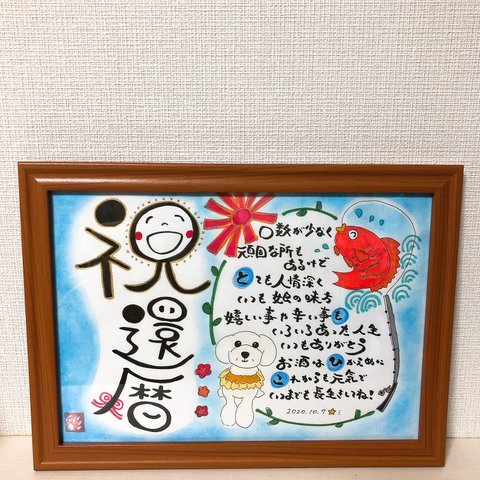 祝
還暦
口数が少なく
頑固な所も
あるけど
とても人情深く
いつも娘の味方
嬉しい事や辛い事も
いろいろあった人生
いつもありがとう
お酒はひかえめに
これからも元気で
いつまでも長生きしてね!
2020.10.7